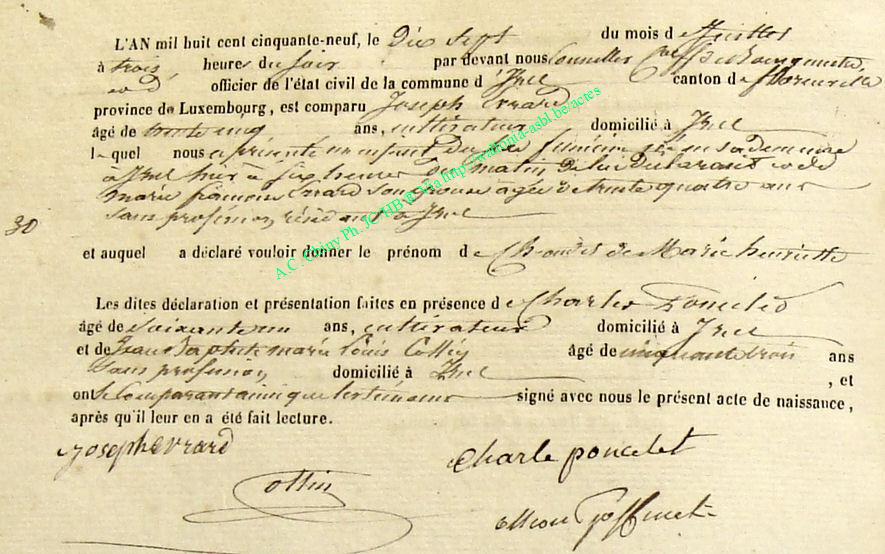 L'AN mil huit cent cinquante-neuf, le Dix sept du mois de Juillet
à trois heures du soir par devant nous Conseiller
officier de l'état civil de la commune d'Izel canton de florenville
province de Luxembourg, est comparu Joseph Evrard
âgé de trente cinq ans, cultivateur domicilié à Izel
lequel nous a présenté un enfant du sexe féminin né en sa demeure
à Izel hier à six heures du matin de lui déclarant et de
marie françoise Evrard son épouse agée de trente quatre ans
sans profession, résidant à Izel
30
et auquel a déclaré vouloir donner le prénom de de Marie henriette
Les dites déclaration et présentation faites en présence de Charles Poncelet
âgé de soixante un ans, cultivateur domicilié à Izel
et de Jean Baptiste marie Louis Collin âgé de cinquante trois ans
sans profession, domicilié à Izel , et
ont le comparant ainsi que les témoins signé avec nous le présent acte de naissance,
après qu'il leur en a été fait lecture.
Joseph Evrard
Charle poncelet
Collin
Goffinet
A.C. Chiny Ph. JC HB & Via http://wallonia-asbl.be/actes